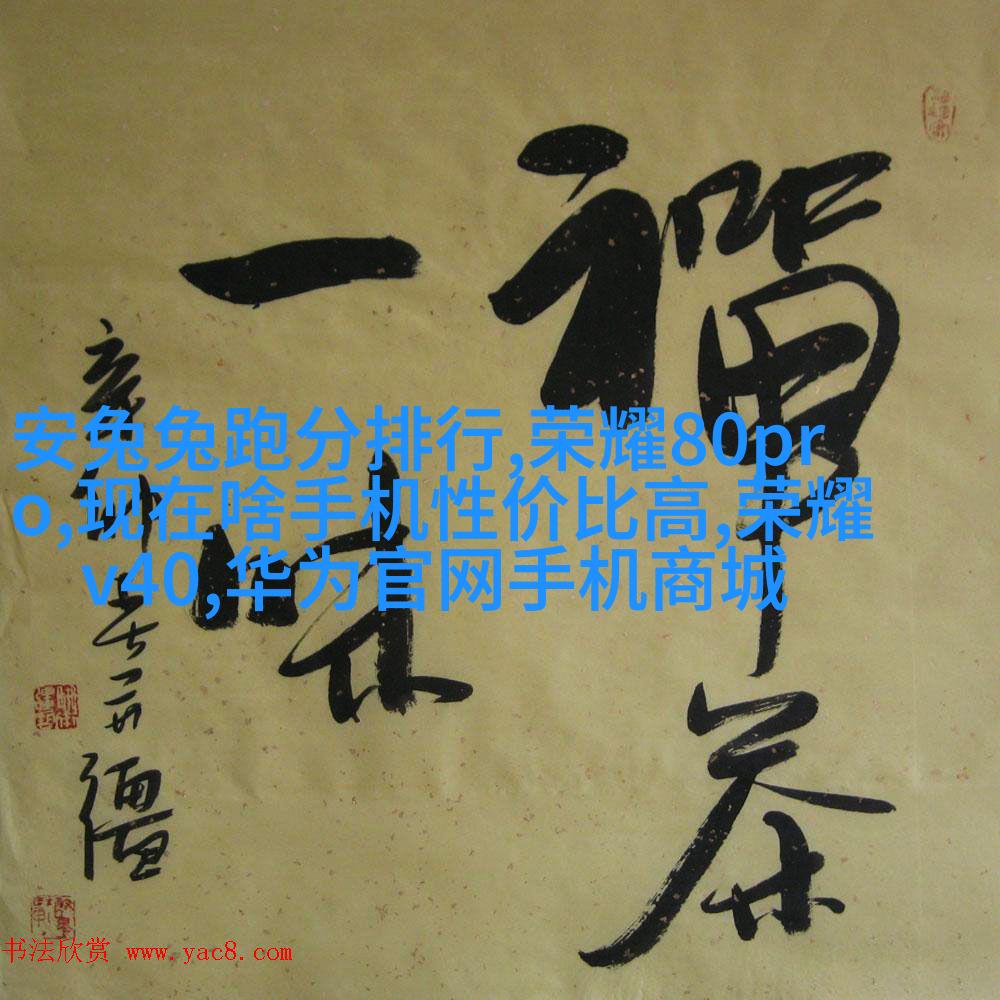 禪茶
一味
安兔兔跑分排行,荣耀80pr
o,现在啥手机性价比高,荣耀
v40,华为官网手机商城
书法欣赏 www.yac8.com